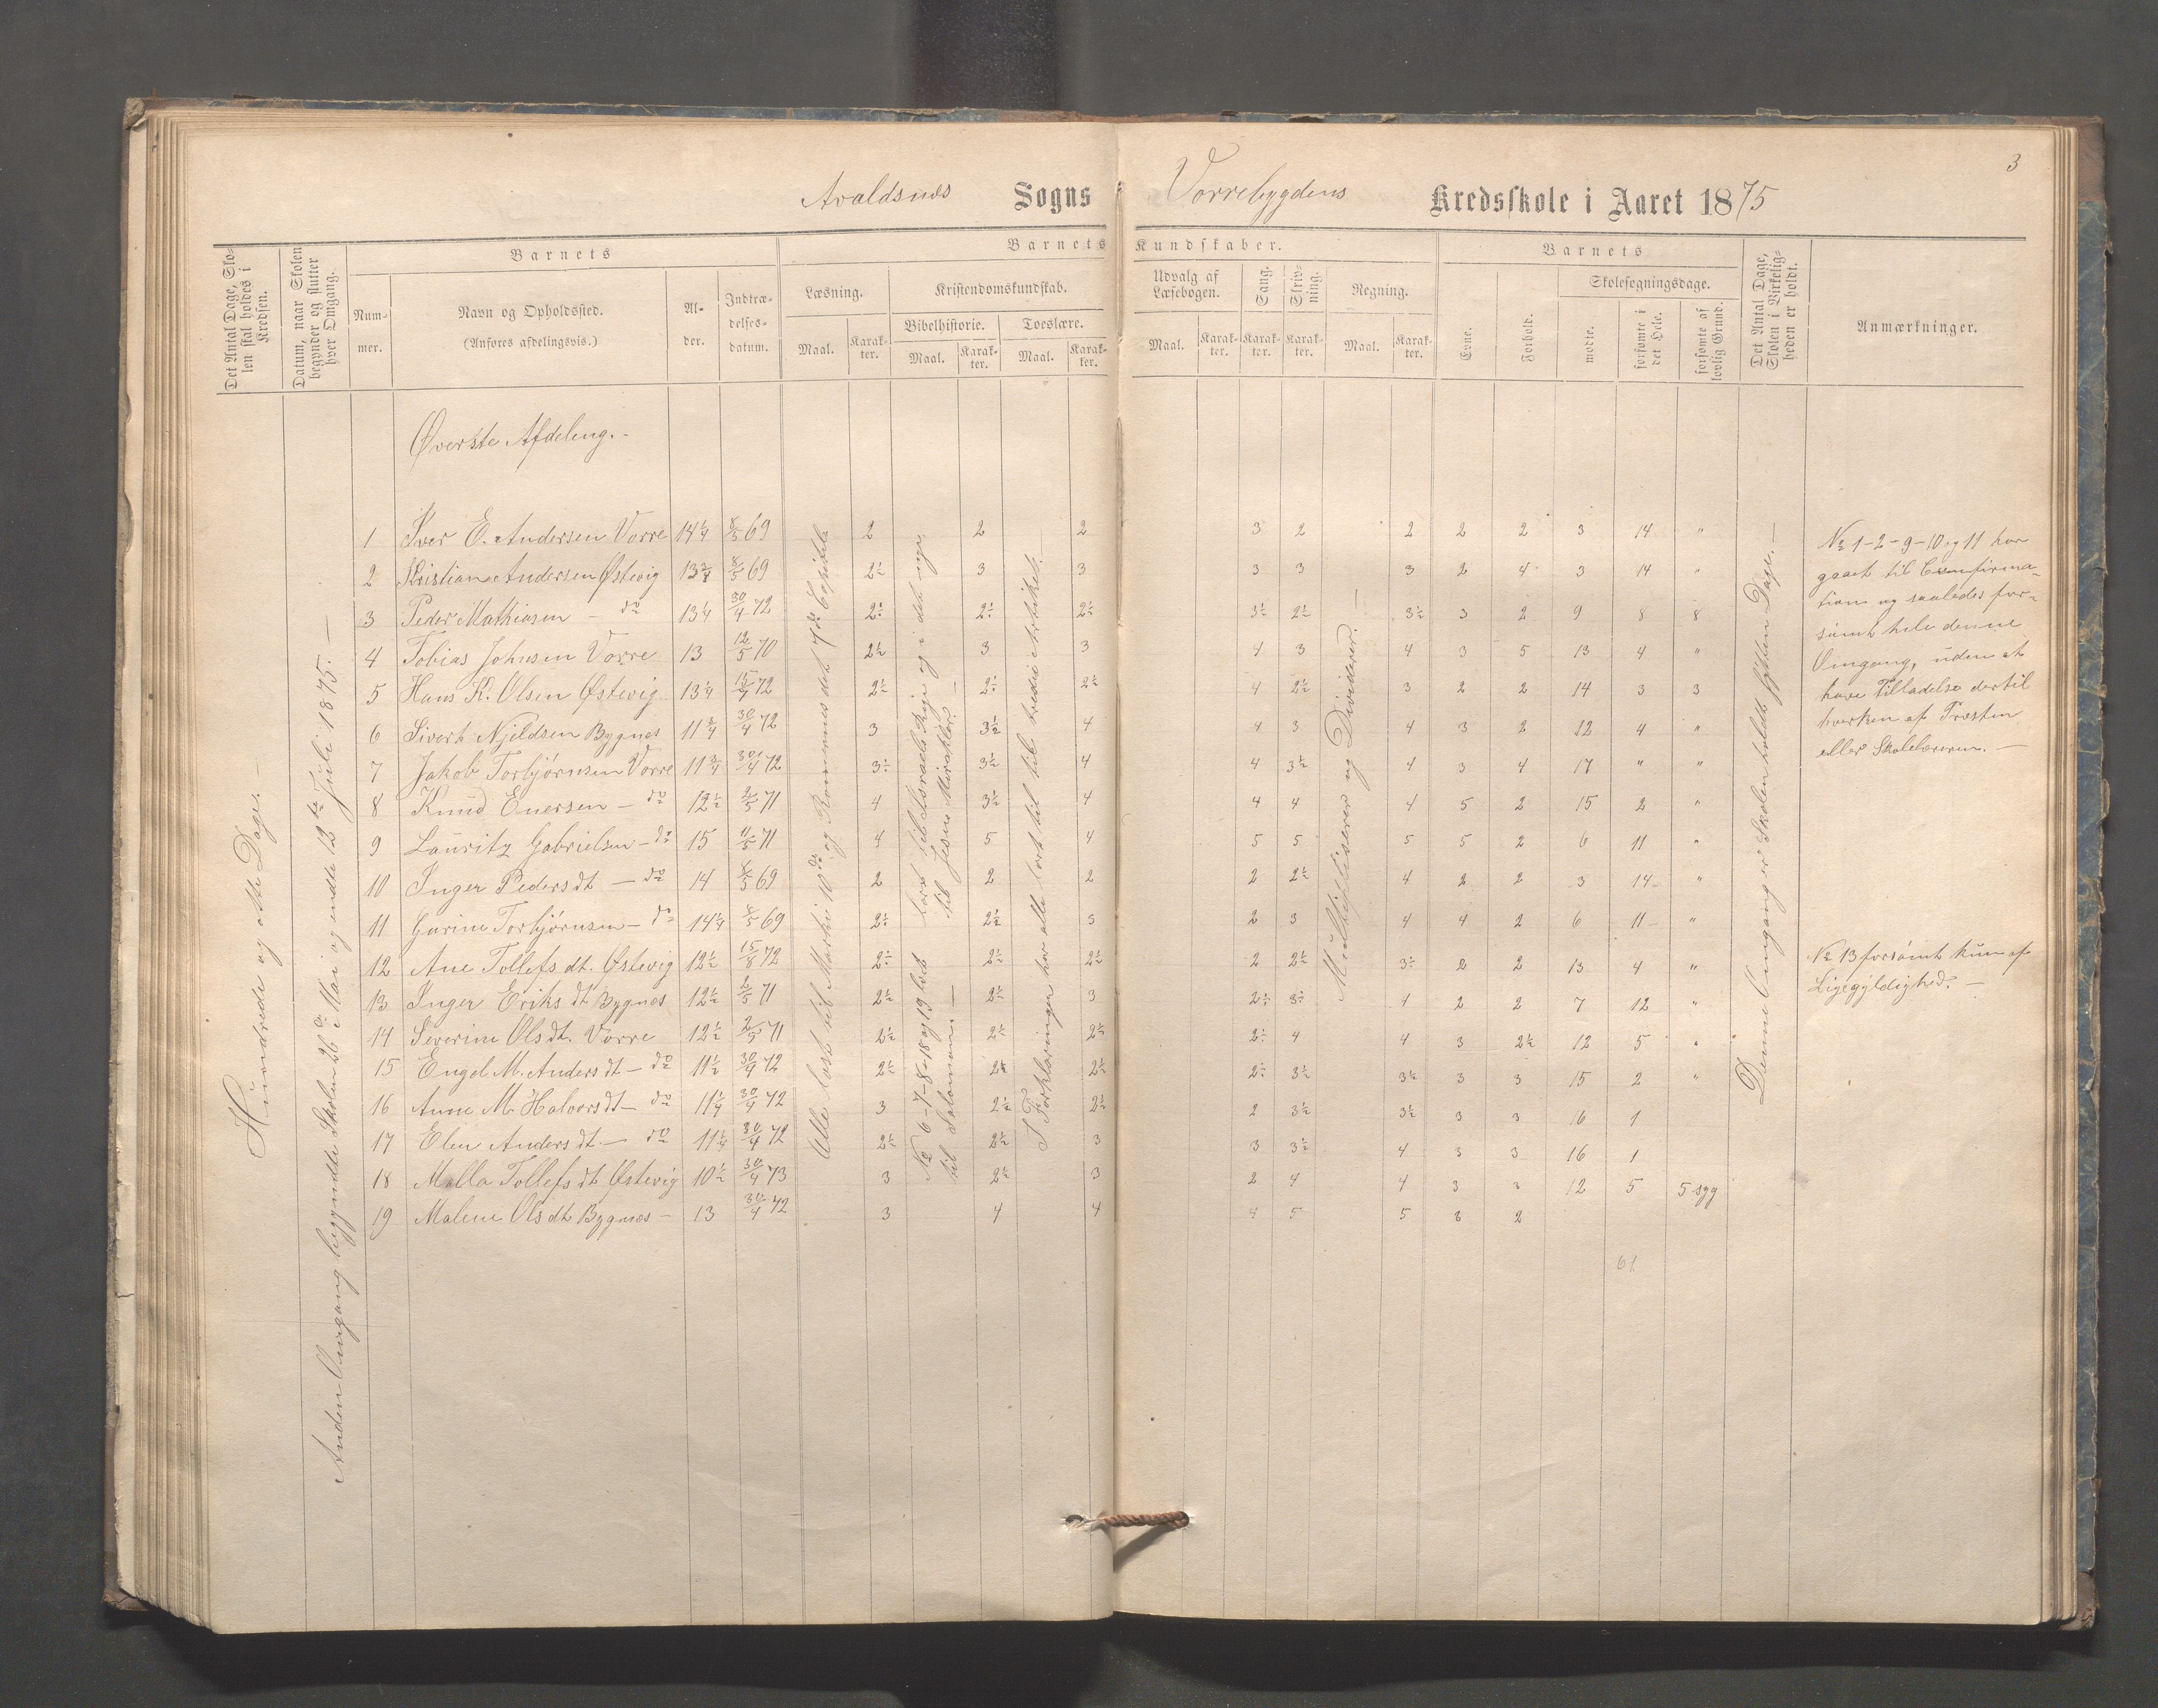 3
Avaldsnæs Sogns Vorrebygdens Kredsskole i Aaret 1875
Det Antal Dage, Sko-
len skal holdes i
Kredsen.
Datum, naar Skolen
begynder og slutter
hver Omgang.
Barnets
Num-
mer.
Navn og Opholdssted.
(Anføres afdelingsvis.)
Al-
der.
Indtræ-
delses-
datum.
Barnets Kundskaber.
Læsning.
Maal.
Karak-
ter.
Kristendomskundskab.
Bibelhistorie.
Maal.
Karak-
ter.
Troeslære.
Maal.
Karak-
ter.
Udvalg af
Læsebogen.
Maal.
Karak-
ter.
Sang.
Karak-
ter.
Skriv-
ning.
Karak-
ter.
Regning.
Maal.
Karak-
ter.
Barnets
Evne.
Forhold.
Skolesøgningsdage.
mødte.
forsømte i
det Hele.
forsømte af
lovlig Grund.
Det Antal Dage,
Skolen i Virkelig-
heden er holdt.
Anmærkninger.
Hundrede og otte Dage. —
Anden Omgang begyndte Skolen 26de Mai og endte 12te Juli 1875. —
Øverste Afdeling. -
1 Iver E. Andersen Vorre 14 1/4 8/5 69 2 2 2 3 2 2 2 2 3 14 "
2 Kristian Andersen Østevig 13 3/4 8/5 69 2 1/2 3 3 3 3 3 2 4 3 14 "
3 Peder Mathiasen - do 13 1/4 30/4 72 2 1/2 2 1/2 2 1/2 3 1/2 2 1/2 3 1/2 3 2 9 8 8
4 Tobias Johnsen Vorre 13 12/5 70 2 1/2 3 3 4 3 4 3 5 13 4 "
5 Hans K. Olsen Østevig 13 1/4 15/4 72 2 1/2 2 1/2 2 1/2 4 2 1/2 3 2 2 14 3 3
6 Sivert Njeldsen Bygnes 11 3/4 30/4 72 3 3 1/2 4 4 3 4 3 2 12 4 "
7 Jakob Torbjørnsen Vorre 11 3/4 30/4 72 3 1/2 3 1/2 4 4 3 1/2 4 3 4 17 " "
8 Knud Enersen - do 12 1/2 2/5 71 4 3 1/2 4 4 4 4 5 2 15 2 "
9 Lauritz Gabrielsen - do 15 11/5 71 4 5 4 5 5 5 5 2 6 11 "
10 Inger Pedersdt - do 14 8/5 69 2 2 2 2 2 1/2 4 2 2 3 14 "
11 Gurine Torbjørnsen - do 14 1/4 8/5 69 2 1/2 2 1/2 3 2 3 4 4 2 6 11 "
12 Ane Tollefsdt. Østevig 12 1/2 15/8 72 2 1/2 2 1/2 2 1/2 2 2 1/2 3 1/2 2 2 13 4 "
13 Inger Eriksdt Bygnes 12 1/2 2/5 71 2 1/2 2 1/2 3 2 1/2 3 1/2 4 2 2 7 12 "
14 Severine Olsdt. Vorre 12 1/2 2/5 71 2 1/2 2 1/2 2 1/2 2 1/2 4 4 3 2 1/2 12 5 "
15 Engel M. Andersdt - do 11 1/2 30/4 72 2 1/2 2 1/2 2 1/2 2 1/2 3 1/2 3 1/2 3 3 15 2 "
16 Anne M. Halvorsdt - do 11 1/4 30/4 72 3 2 1/2 2 1/2 2 3 1/2 3 1/2 3 3 16 1
17 Elen Andersdt. - do 11 1/4 30/4 72 2 1/2 2 1/2 3 3 3 1/2 4 3 3 16 1
18 Malla Tollefsdt Østevig 10 1/2 30/4 73 3 2 1/2 3 2 4 4 3 3 12 5 5 syg
19 Malene Olsdt Bygnes - 13 30/4 72 3 4 4 4 5 5 3 2
61
Alle læst til Marki 10de og Rommernes det 7de Capitel
Lært til Israels Rige og i det nye
til Jesus Mirakler. —
No 6-7-8-18 og 19 lært
til Salomon. —
I Forklaringen har alle lært til til tredie Artikel.
Multipliserer og Dividerer. —
Denne Omgang er Skolen holdt sytten Dage. —
No 1-2-9-10 og 11 har
gaaet til Confirma-
tion og saaledes for-
sømt hele denne
Omgang, uden at
have Tilladelse dertil
hverken af Præsten
eller Skolelæreren. —
No 13 forsømt kun af
Ligegyldighed. —